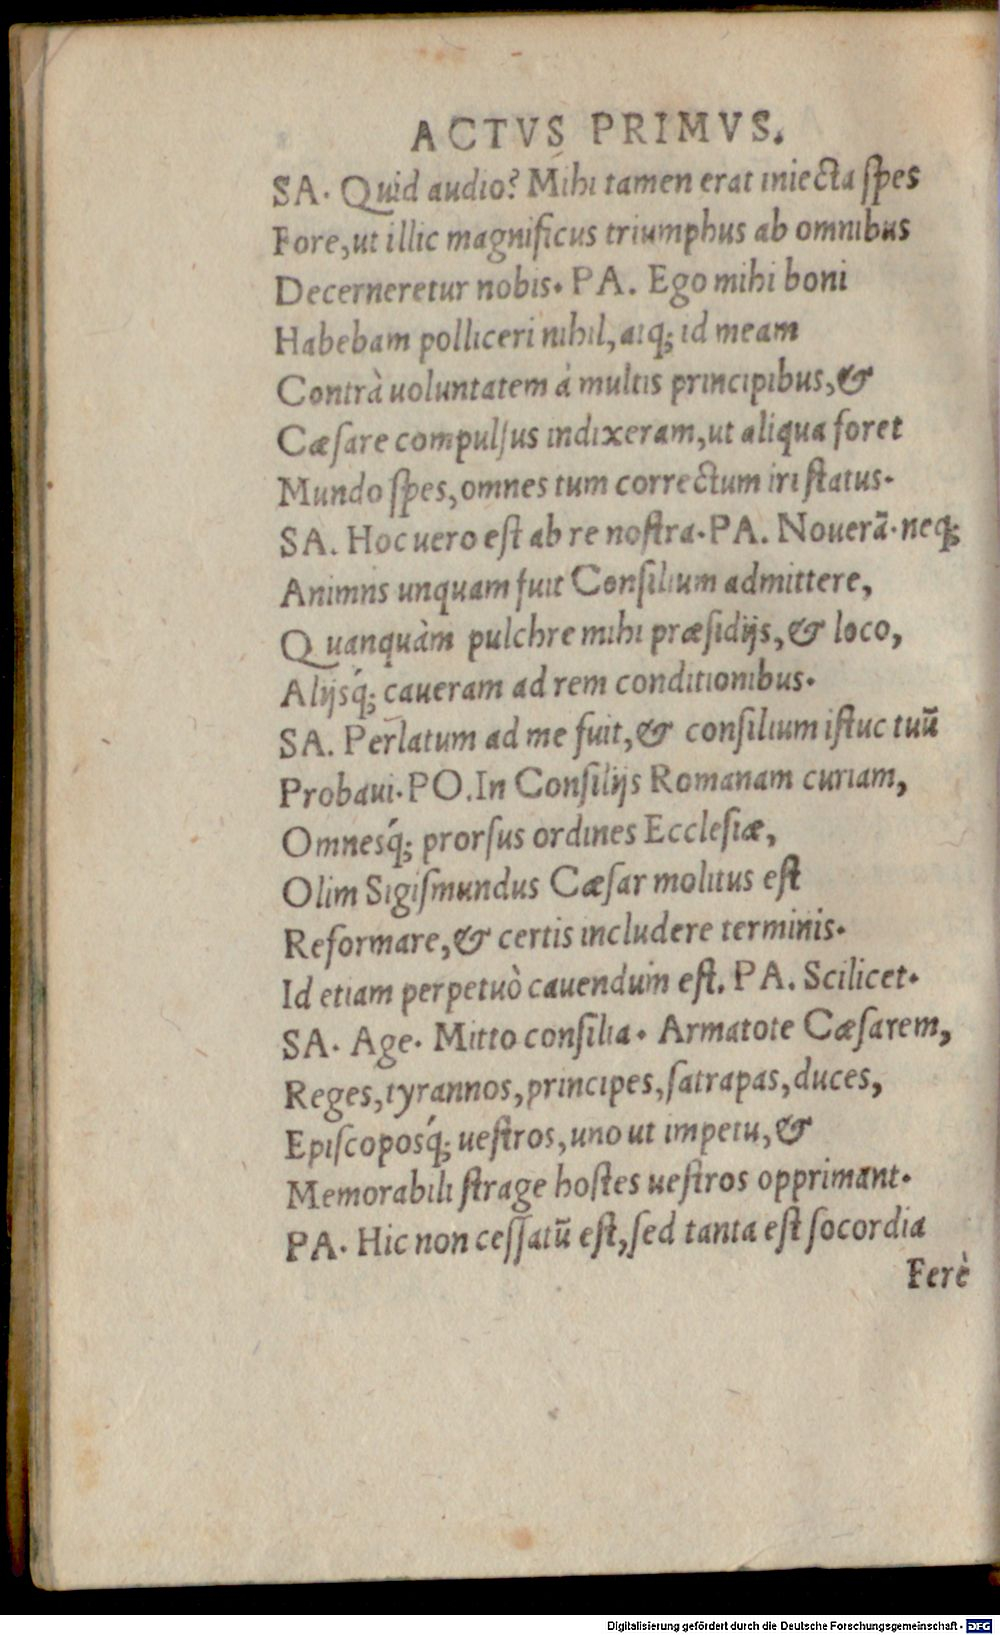 ACTVS PRIMVS.
SA. Quid audio? Mihi tamen erat iniecta ſpes
Fore, ut illic magnificus triumphus ab omnibus
Decerneretur nobis. PA. Ego mihi boni
Habebam polliceri nihil, atq; id meam
Contrà uoluntatem à multis principibus, &
Cæſare compulſus indixeram, ut aliqua foret
Mundo ſpes, omnes tum correctum iri ſtatus.
SA. Hoc uero eſt ab re noſtra. PA. Nouerā. neq;
Animus unquam fuit Conſilium admittere,
Quanquàm pulchre mihi præſidijs, & loco,
Alijsq́; caueram ad rem conditionibus.
SA. Perlatum ad me fuit, & conſilium iſtuc tuū
Probaui. PO. In Conſilijs Romanam curiam,
Omnesq́; prorſus ordines Eccleſiæ,
Olim Sigiſmundus Cæſar molitus eſt
Reformare, & certis includere terminis.
Id etiam perpetuò cauendum eſt. PA. Scilicet.
SA. Age. Mitto conſilia. Armatote Cæſarem,
Reges, tyrannos, principes, ſatrapas, duces,
Epiſcoposq́; ueſtros, uno ut impetu, &
Memorabili ſtrage hoſtes ueſtros opprimant.
PA. Hic non ceſſatū eſt, ſed tanta eſt ſocordia
Ferè
Digitalisierung gefördert durch die Deutsche Forschungsgemeinschaft - DFG